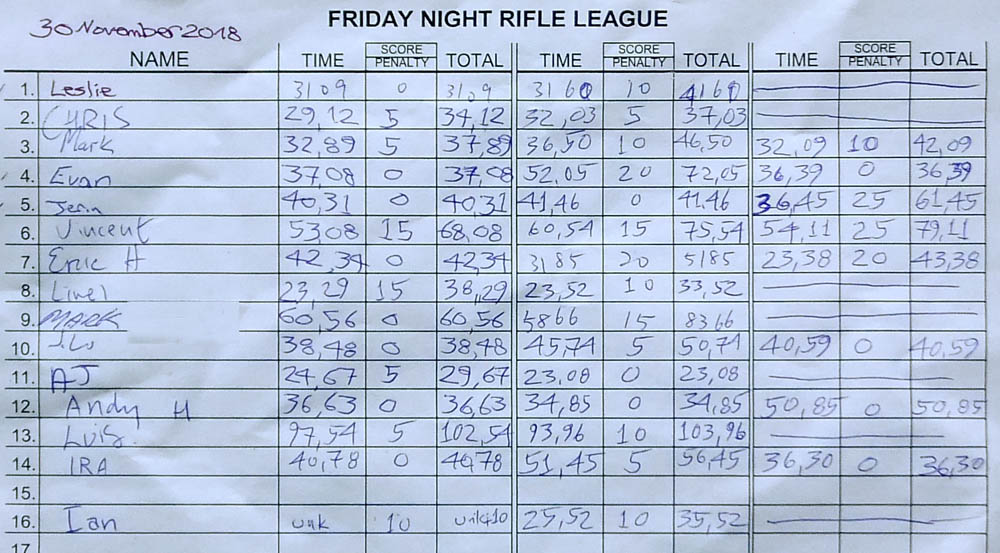 30 November 2018
FRIDAY NIGHT RIFLE LEAGUE
NAME TIME SCORE PENALTY TOTAL TIME SCORE PENALTY TOTAL TIME SCORE PENALTY TOTAL
1. Leslie 3109 0 31,9 3160 10 4160
2. CHRIS 29,12 5 34,12 32,03 5 37,03
3. Mark 32,89 5 37,89 36,50 10 46,50 32,09 10 42,09
4. Evan 37,08 0 37,08 52,05 20 72,05 36,39 0 36,39
5. 40,31 0 40,31 41,46 0 41,46 36,45 25 61,45
6. Vincent 53,08 15 68,08 60,54 15 75,54 54,11 25 79,11
7. Eric H 42,34 0 42,34 3185 20 5185 23,38 20 43,38
8. 23,29 15 38,29 23,52 10 33,52
9. MARK 60,56 0 60,56 5866 15 8366
10. 38,48 0 38,48 45,74 5 50,74 40,59 0 40,59
11. AJ 24,67 5 29,67 23.08 0 23,08
12. Andy H 36,63 0 36,63 34,85 0 34,85 50,85 0 50,85
13. Luis 97,54 5 102,54 93,96 10 103,96
14. IRA 40,78 0 40,78 51,45 5 56,45 36,30 0 36,30
15.
16. Ian unk 10 unk+10 25,52 10 35,52
17